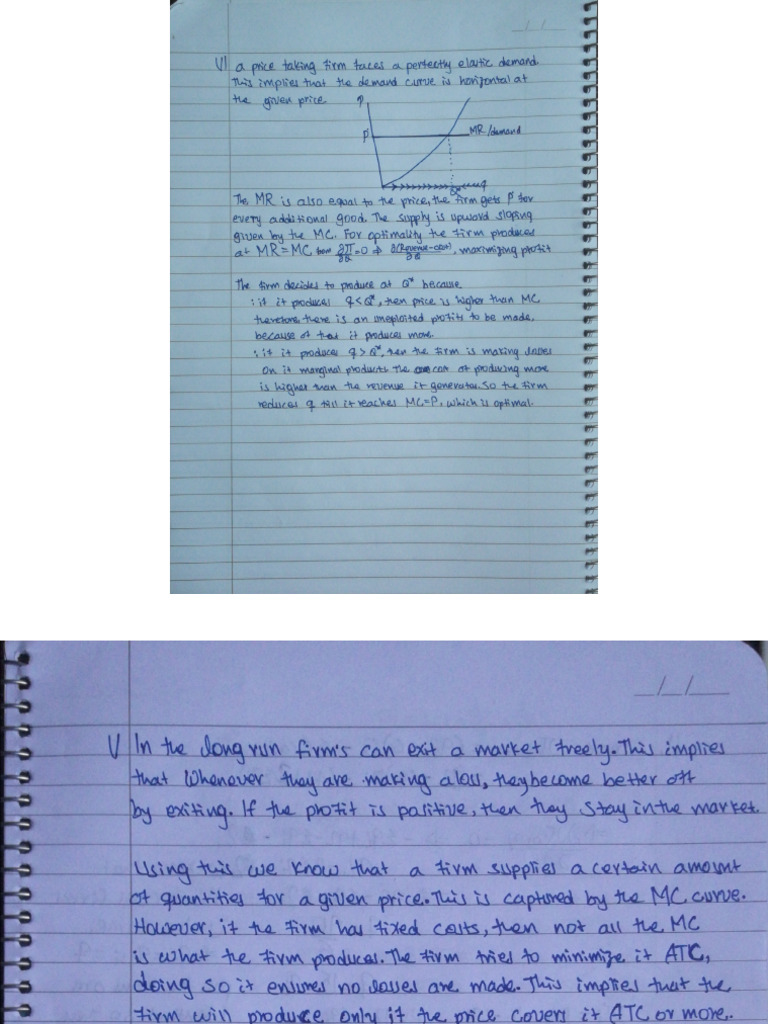 VI a price taking firm faces a perfectly elastic demand.
This implies that the demand curve is horizontal at
the given price.
P
P
MR/demand
Q*
q
The MR is also equal to the price, the firm gets P for
every additional good. The supply is upward sloping
given by the MC. For optimality the firm produces
at MR=MC from ∂Π/∂Q=0 ⇒ ∂(Revenue-cost)/∂Q, maximizing profit
The firm decides to produce at Q* because
: if it produces q<Q*, then price is higher than MC
therefore there is an unexploited profits to be made,
because of that it produces more.
: if it produces q>Q*, then the firm is making losses
on it marginal products. The cost of producing more
is higher than the revenue it generates. So the firm
reduces q till it reaches MC=P, which is optimal.
_/_/_
V In the long run firm's can exit a market freely. This implies
that whenever they are making a loss, they become better off
by exiting. If the profit is positive, then they stay in the market.
Using this we know that a firm supplies a certain amount
of quantities for a given price. This is captured by the MC curve.
However, if the firm has fixed costs, then not all the MC
is what the firm produces. The firm tries to minimize it ATC,
doing so it ensures no losses are made. This implies that the
firm will produce only if the price covers it ATC or more..